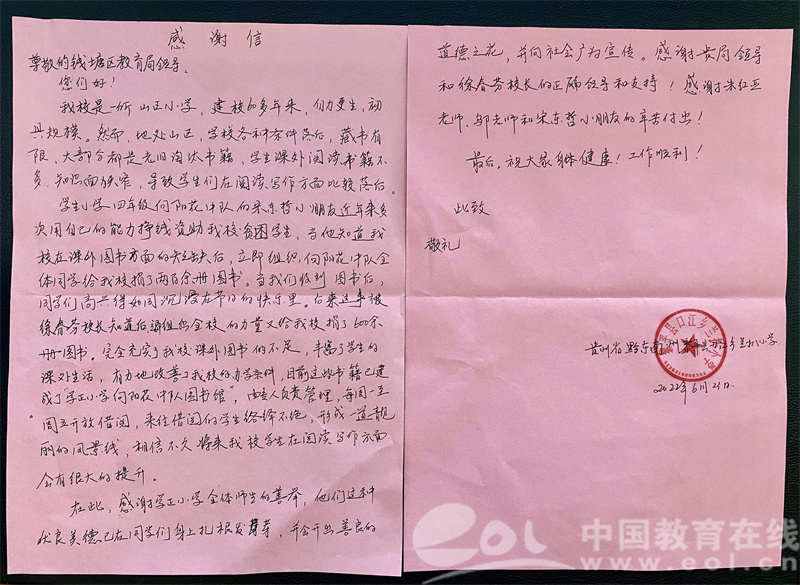 感谢信
尊敬的钱塘区教育局领导:
您们好!
我校是一所山区小学,建校60多年来,自力更生,初
具规模。然而,地处山区,学校各种条件落后,藏书有
限、大部分都是老旧淘汰书籍,学生课外阅读书籍不
多,知识面狭窄,导致学生们在阅读写作方面比较落后。
学正小学四年级向阳花中队的宋东哲小朋友近年来多
次用自己的能力挣钱资助我校贫困学生,当他知道我
校在课外图书方面的欠缺后,立即组织向阳花中队全
体同学给我校捐了两百余册图书。当我们收到图书后,
同学们高兴得如同沉浸在节日的快乐里。后来这事被
徐春芬校长知道后请组织全校的力量又给我校捐了600余
册图书。完全充实了我校课外图书的不足,丰富了学生的
课外生活,有力地改善了我校的办学条件,目前这些书籍已建
成了“学正小学向阳花中队图书馆”,由专人负责管理,每周一至
周五开放借阅,来往借阅的学生络绎不绝,形成一道靓
丽的风景线,相信不久将来我校学生在阅读写作方面
会有很大的提升。
在此,感谢学正小学全体师生的善举,他们这种
优良美德已在同学们身上扎根发芽,并会开出善良的
道德之花,并向社会广为宣传。感谢贵局领导
和徐春芬校长的正确领导和支持!感谢朱红亚
老师、邬老师和宋东哲小朋友的辛苦付出!
最后,祝大家身体健康!工作顺利!
此致
敬礼
贵州省黔东南州 小学
2022年6月23日
中国教育在线
eol
www.eol.cn